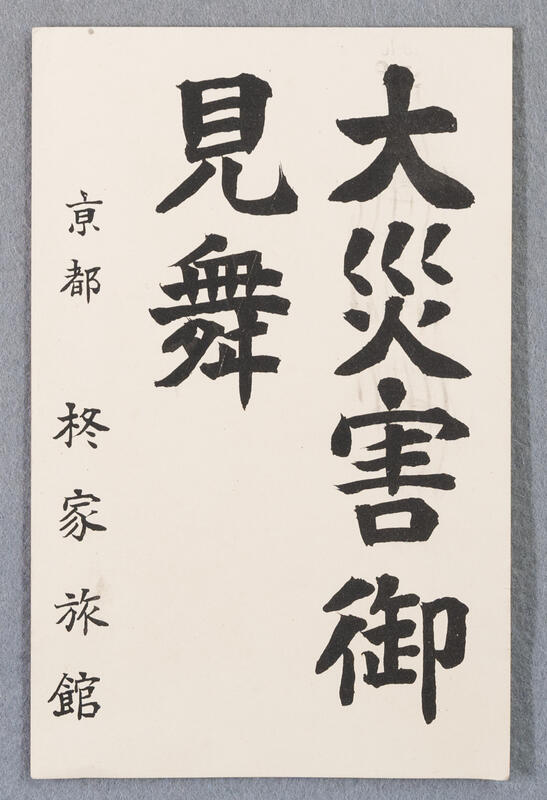 大災害御
見舞
京都 柊家旅館